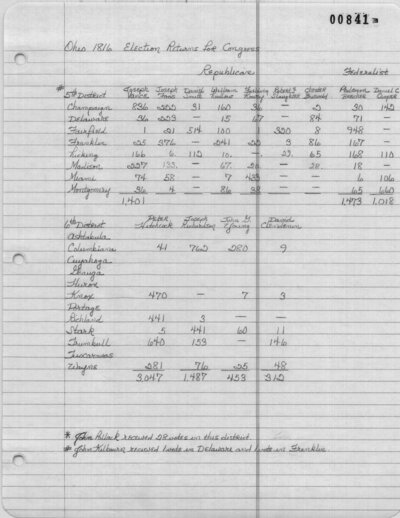 00841
Ohio 1816 Election Returns for Congress
Republican Federalist
5th District Joseph Vance Joseph Foos David Smith William Ludlow William Robert F. Slaughter Philemon Beecher Daniel C.
Champaign 836 222 31 160 36 — 2 30 142
Delaware 36 223 — 15 67 — 84 71 —
Fairfield 1 21 514 100 1 320 8 948 —
Franklin 25 376 — 241 22 3 86 167 —
Licking 166 6 112 10 — 65 168 110
Madison 227 133 — 67 — 18 —
Miami 74 58 — 7 433 — — 6 106
Montgomery 36 4 — 86 — — 65 660
1,401 1,473 1,018
6th District Peter Hitchcock Joseph Richardson John G. Young David Clendenin
Ashtabula
Columbiana 41 762 280 9
Cuyahoga
Geauga
Huron
Knox 470 — 7 3
Portage
Richland 441 3 — —
Stark 5 441 60 11
Trumbull 640 153 — 146
Tuscarawas
Wayne 281 76 25 48
3,047 1,487 453 312
* John Pollock received 28 votes in this district.
# John Kilbourn received 1 vote in Delaware and 1 vote in Franklin.